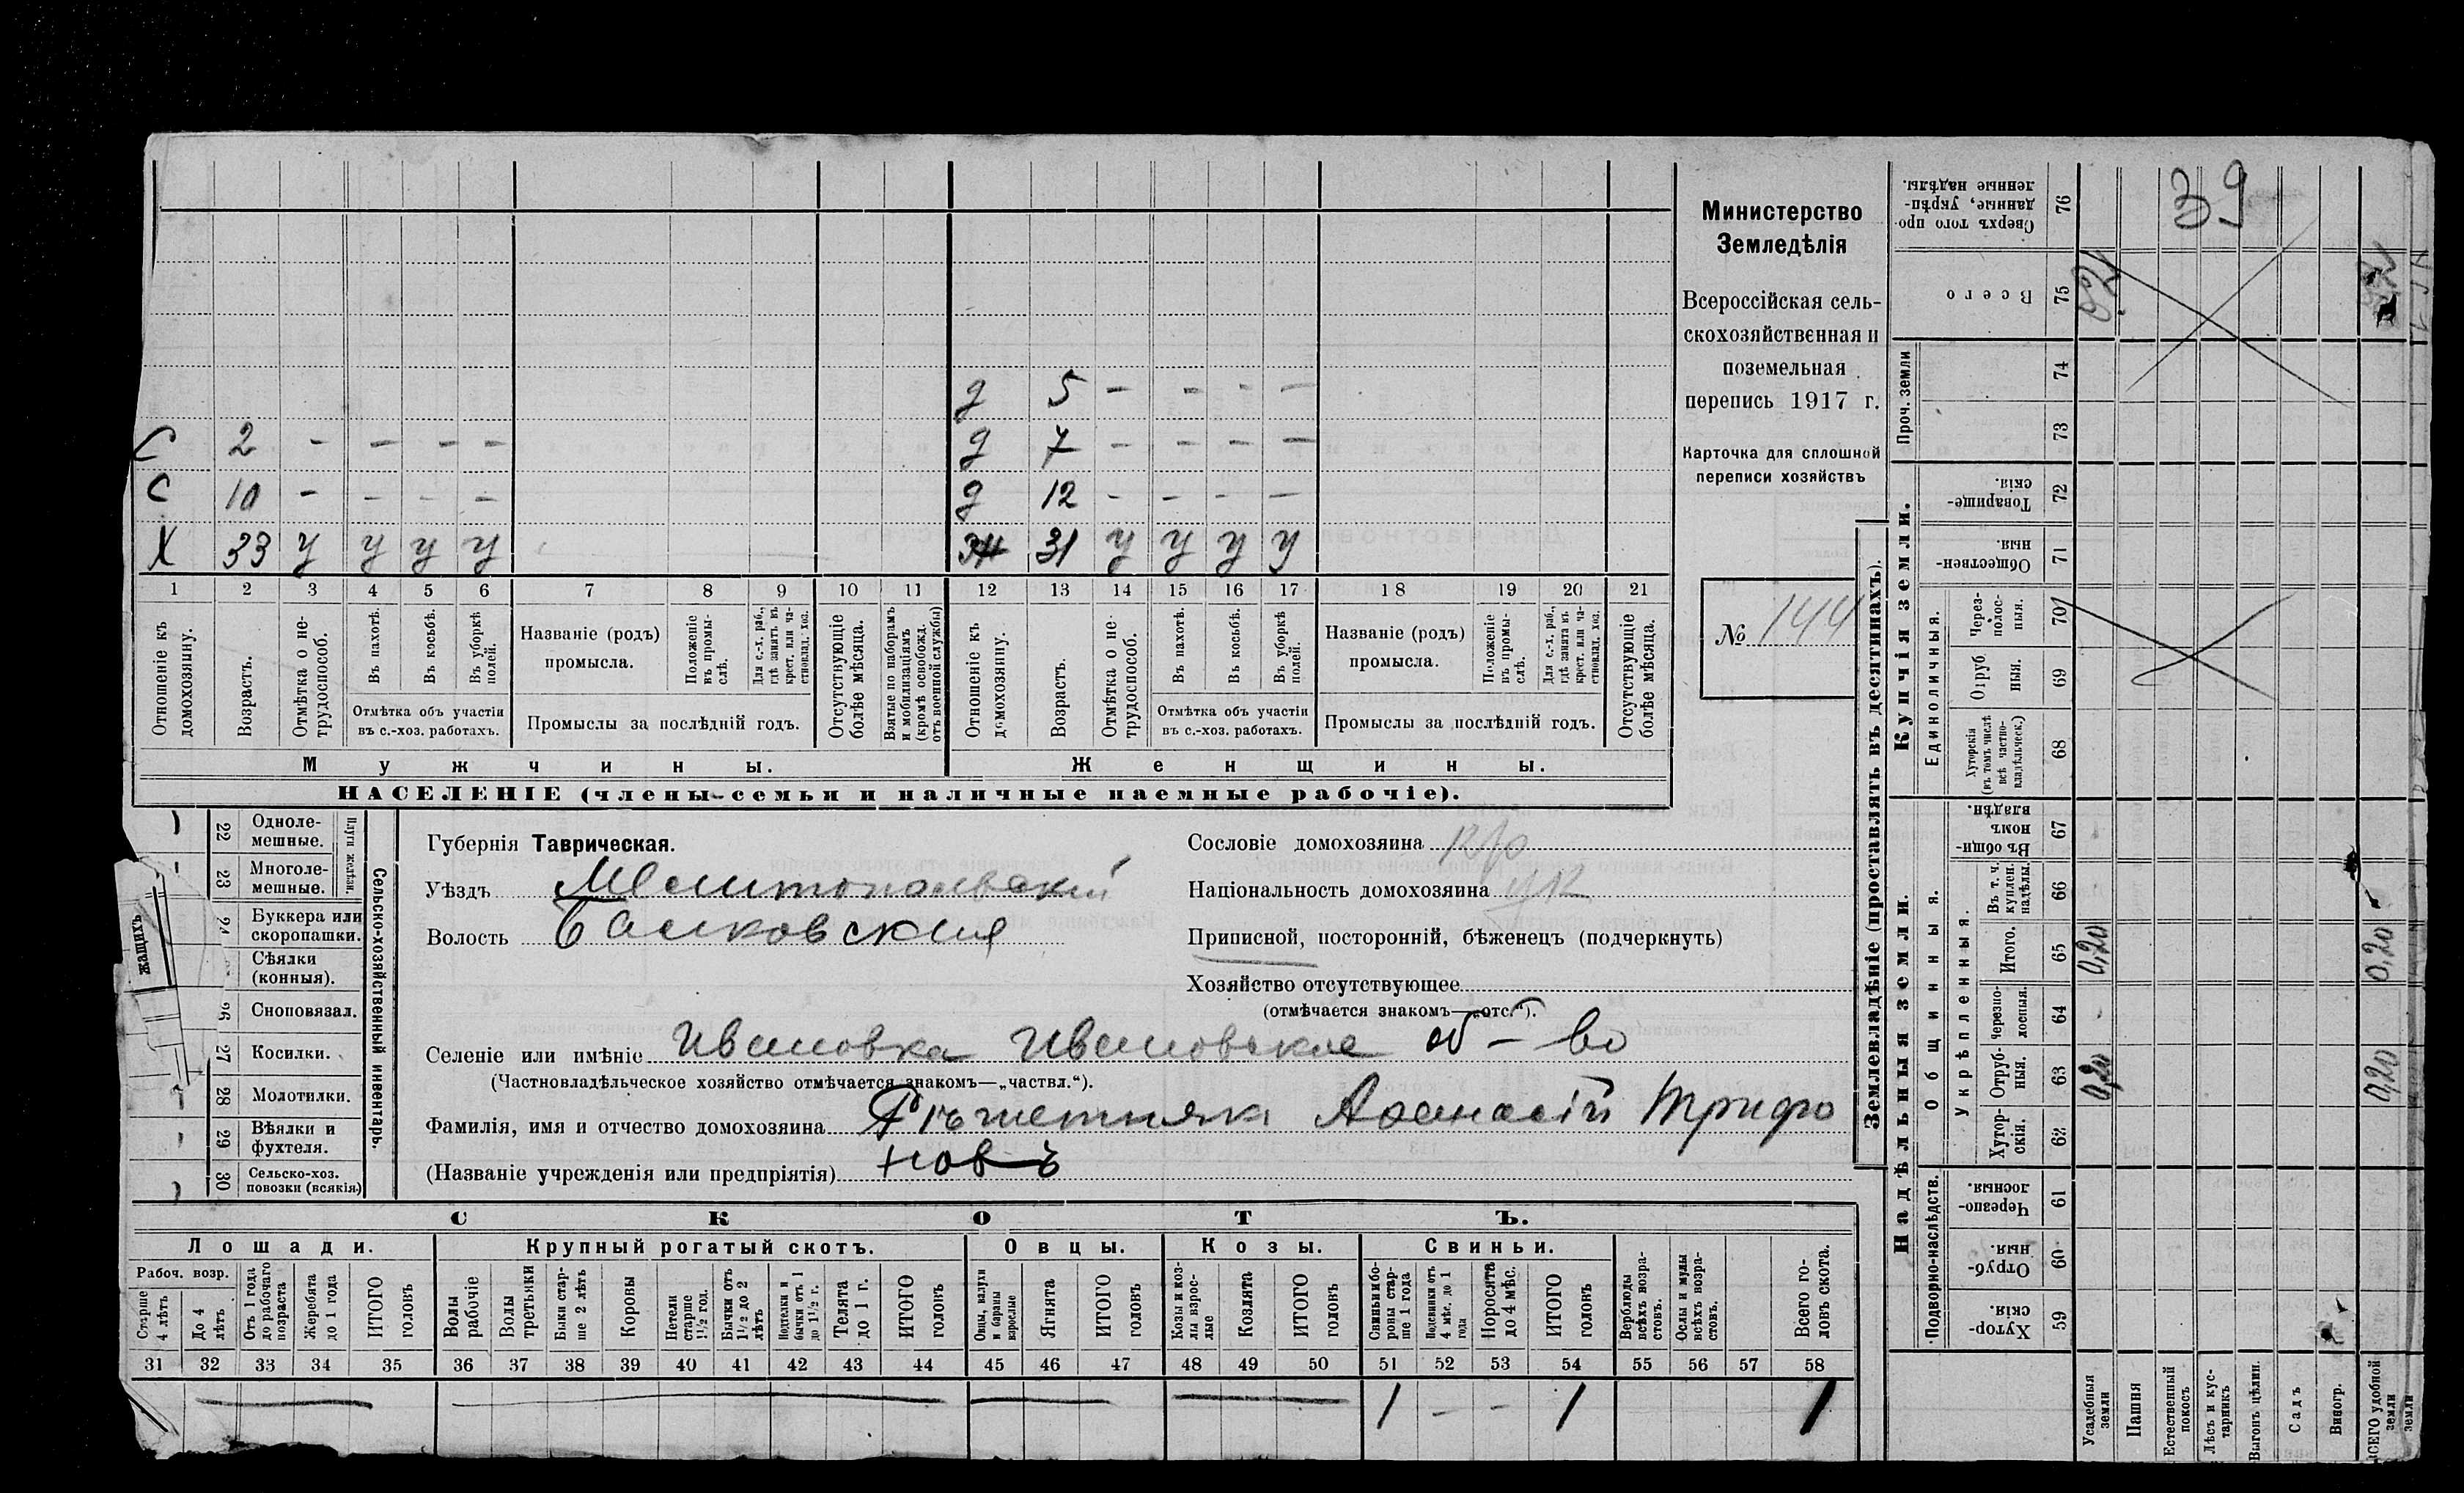 С 2 - - - - д 5 - - - -
С 10 - - - - д 7 - - - -
д 12 - - - -
Х 33 у у у у ж 31 у у у у
1 2 3 4 5 6 7 8 9 10 11 12 13 14 15 16 17 18 19 20 21
Отношеніе къ домохозяину.
Возрастъ.
Отмѣтка о не-трудоспособ.
Въ пахотѣ.
Въ косьбѣ.
Въ уборкѣ полей.
Отмѣтка объ участіи
въ с.-хоз. работахъ.
Названіе (родъ)
промысла.
Положеніе въ промы-слѣ.
Для с.-х. раб., гдѣ занятъ въ крест. или ча-стновлад. хоз.
Промыслы за послѣдній годъ.
Отсутствующіе болѣе мѣсяца.
Взятые по наборамъ и мобилизаціямъ (кромѣ освобожд. отъ военной службы)
Отношеніе къ домохозяину.
Возрастъ.
Отмѣтка о не-трудоспособ.
Въ пахотѣ.
Въ косьбѣ.
Въ уборкѣ полей.
Отмѣтка объ участіи
въ с.-хоз. работахъ.
Названіе (родъ)
промысла.
Положеніе въ промы-слѣ.
Для с.-х. раб., гдѣ занята въ крест. или ча-стновлад. хоз.
Промыслы за послѣдній годъ.
Отсутствующіе болѣе мѣсяца.
Мужчины.
Женщины.
НАСЕЛЕНІЕ (члены семьи и наличные наемные рабочіе).
Министерство
Земледѣлія
Всероссійская сель-
скохозяйственная и
поземельная
перепись 1917 г.
Карточка для сплошной
переписи хозяйствъ
№ 144
22 Одноле-мешные.
23 Многоле-мешные.
Плуги желѣзн.
24 Буккера или скоропашки.
Сѣялки (конныя).
26 Сноповязал.
27 Косилки.
28 Молотилки.
29 Вѣялки и фухтеля.
30 Сельско-хоз. повозки (всякія)
Сельско-хозяйственный инвентарь.
жащихъ
Губернія Таврическая.
Уѣздъ Мелитопольскій
Волость Балковская
Сословіе домохозяина кр
Національность домохозяина ук
Приписной, посторонній, бѣженецъ (подчеркнуть)
Хозяйство отсутствующее
(отмѣчается знакомъ—„отс.“).
Селеніе или имѣніе Ивановка Ивановское об-во
(Частновладѣльческое хозяйство отмѣчается знакомъ—„частвл.“).
Фамилія, имя и отчество домохозяина Рѣшетняка Афанасій Трифо
(Названіе учрежденія или предпріятія) новъ
СКОТЪ.
Лошади. Крупный рогатый скотъ. Овцы. Козы. Свиньи.
Рабоч. возр.
Старше 4 лѣтъ
До 4 лѣтъ
Отъ 1 года до рабочаго возраста
Жеребята до 1 года
ИТОГО головъ
Волы рабочіе
Волы третьяки
Быки стар-ше 2 лѣтъ
Коровы
Нетели старше 1½ год.
Бычки отъ 1½ до 2 лѣтъ
Подтелки и бычки отъ 1 до 1½ г.
Телята до 1 г.
ИТОГО головъ
Овцы, валухи и бараны взрослые
Ягнята
ИТОГО головъ
Козы и коз-лы взрос-лые
Козлята
ИТОГО головъ
Свиньи и бо-ровы стар-ше 1 года
Подсвинки отъ 4 мѣс. до 1 года
Поросята до 4 мѣс.
ИТОГО головъ
Верблюды всѣхъ возра-стовъ.
Ослы и мулы всѣхъ возра-стовъ.
Всего го-ловъ скота.
31 32 33 34 35 36 37 38 39 40 41 42 43 44 45 46 47 48 49 50 51 52 53 54 55 56 57 58
1 - - 1 1
Землевладѣніе (проставлять въ десятинахъ).
Купчія земли.
Надѣльныя земли.
Сверхъ того про-данные, укрѣп-ленные надѣлы. 76
39
Всего 75
Проч. земли
74
73
Товарище-скія. 72
Обществен-ныя. 71
Единоличныя.
Через-полос-ныя. 70
Отруб-ныя. 69
Хуторскія (въ томъ числѣ всѣ частно-владѣльческ.) 68
Общинныя.
Въ общин-номъ владѣн. 67
Укрѣпленныя.
Въ т. ч. куплен. надѣлы. 66
Итого. 65 0,20 0,20
Черезпо-лосныя. 64 -
Отруб-ныя. 63 0,20 0,20
Хутор-скія. 62
Подворно-наслѣдств.
Черезпо-лосныя. 61
Отруб-ныя. 60
Хутор-скія. 59
Усадебныя земли
Пашня
Естественный покосъ
Лѣсъ и кус-тарникъ
Выгонъ цѣлин.
Садъ
Виногр.
ВСЕГО удобной земли
земли